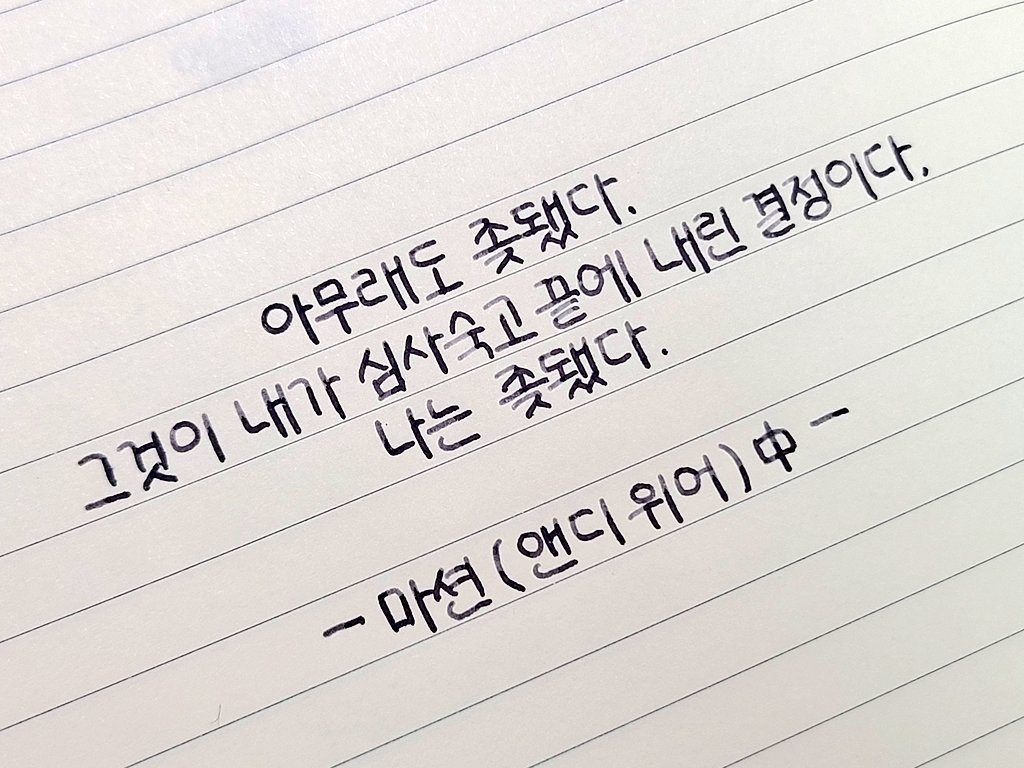 아무래도 좆됐다.
그것이 내가 심사숙고 끝에 내린 결정이다.
나는 좆됐다.
- 마션 (앤디 위어) 中 -